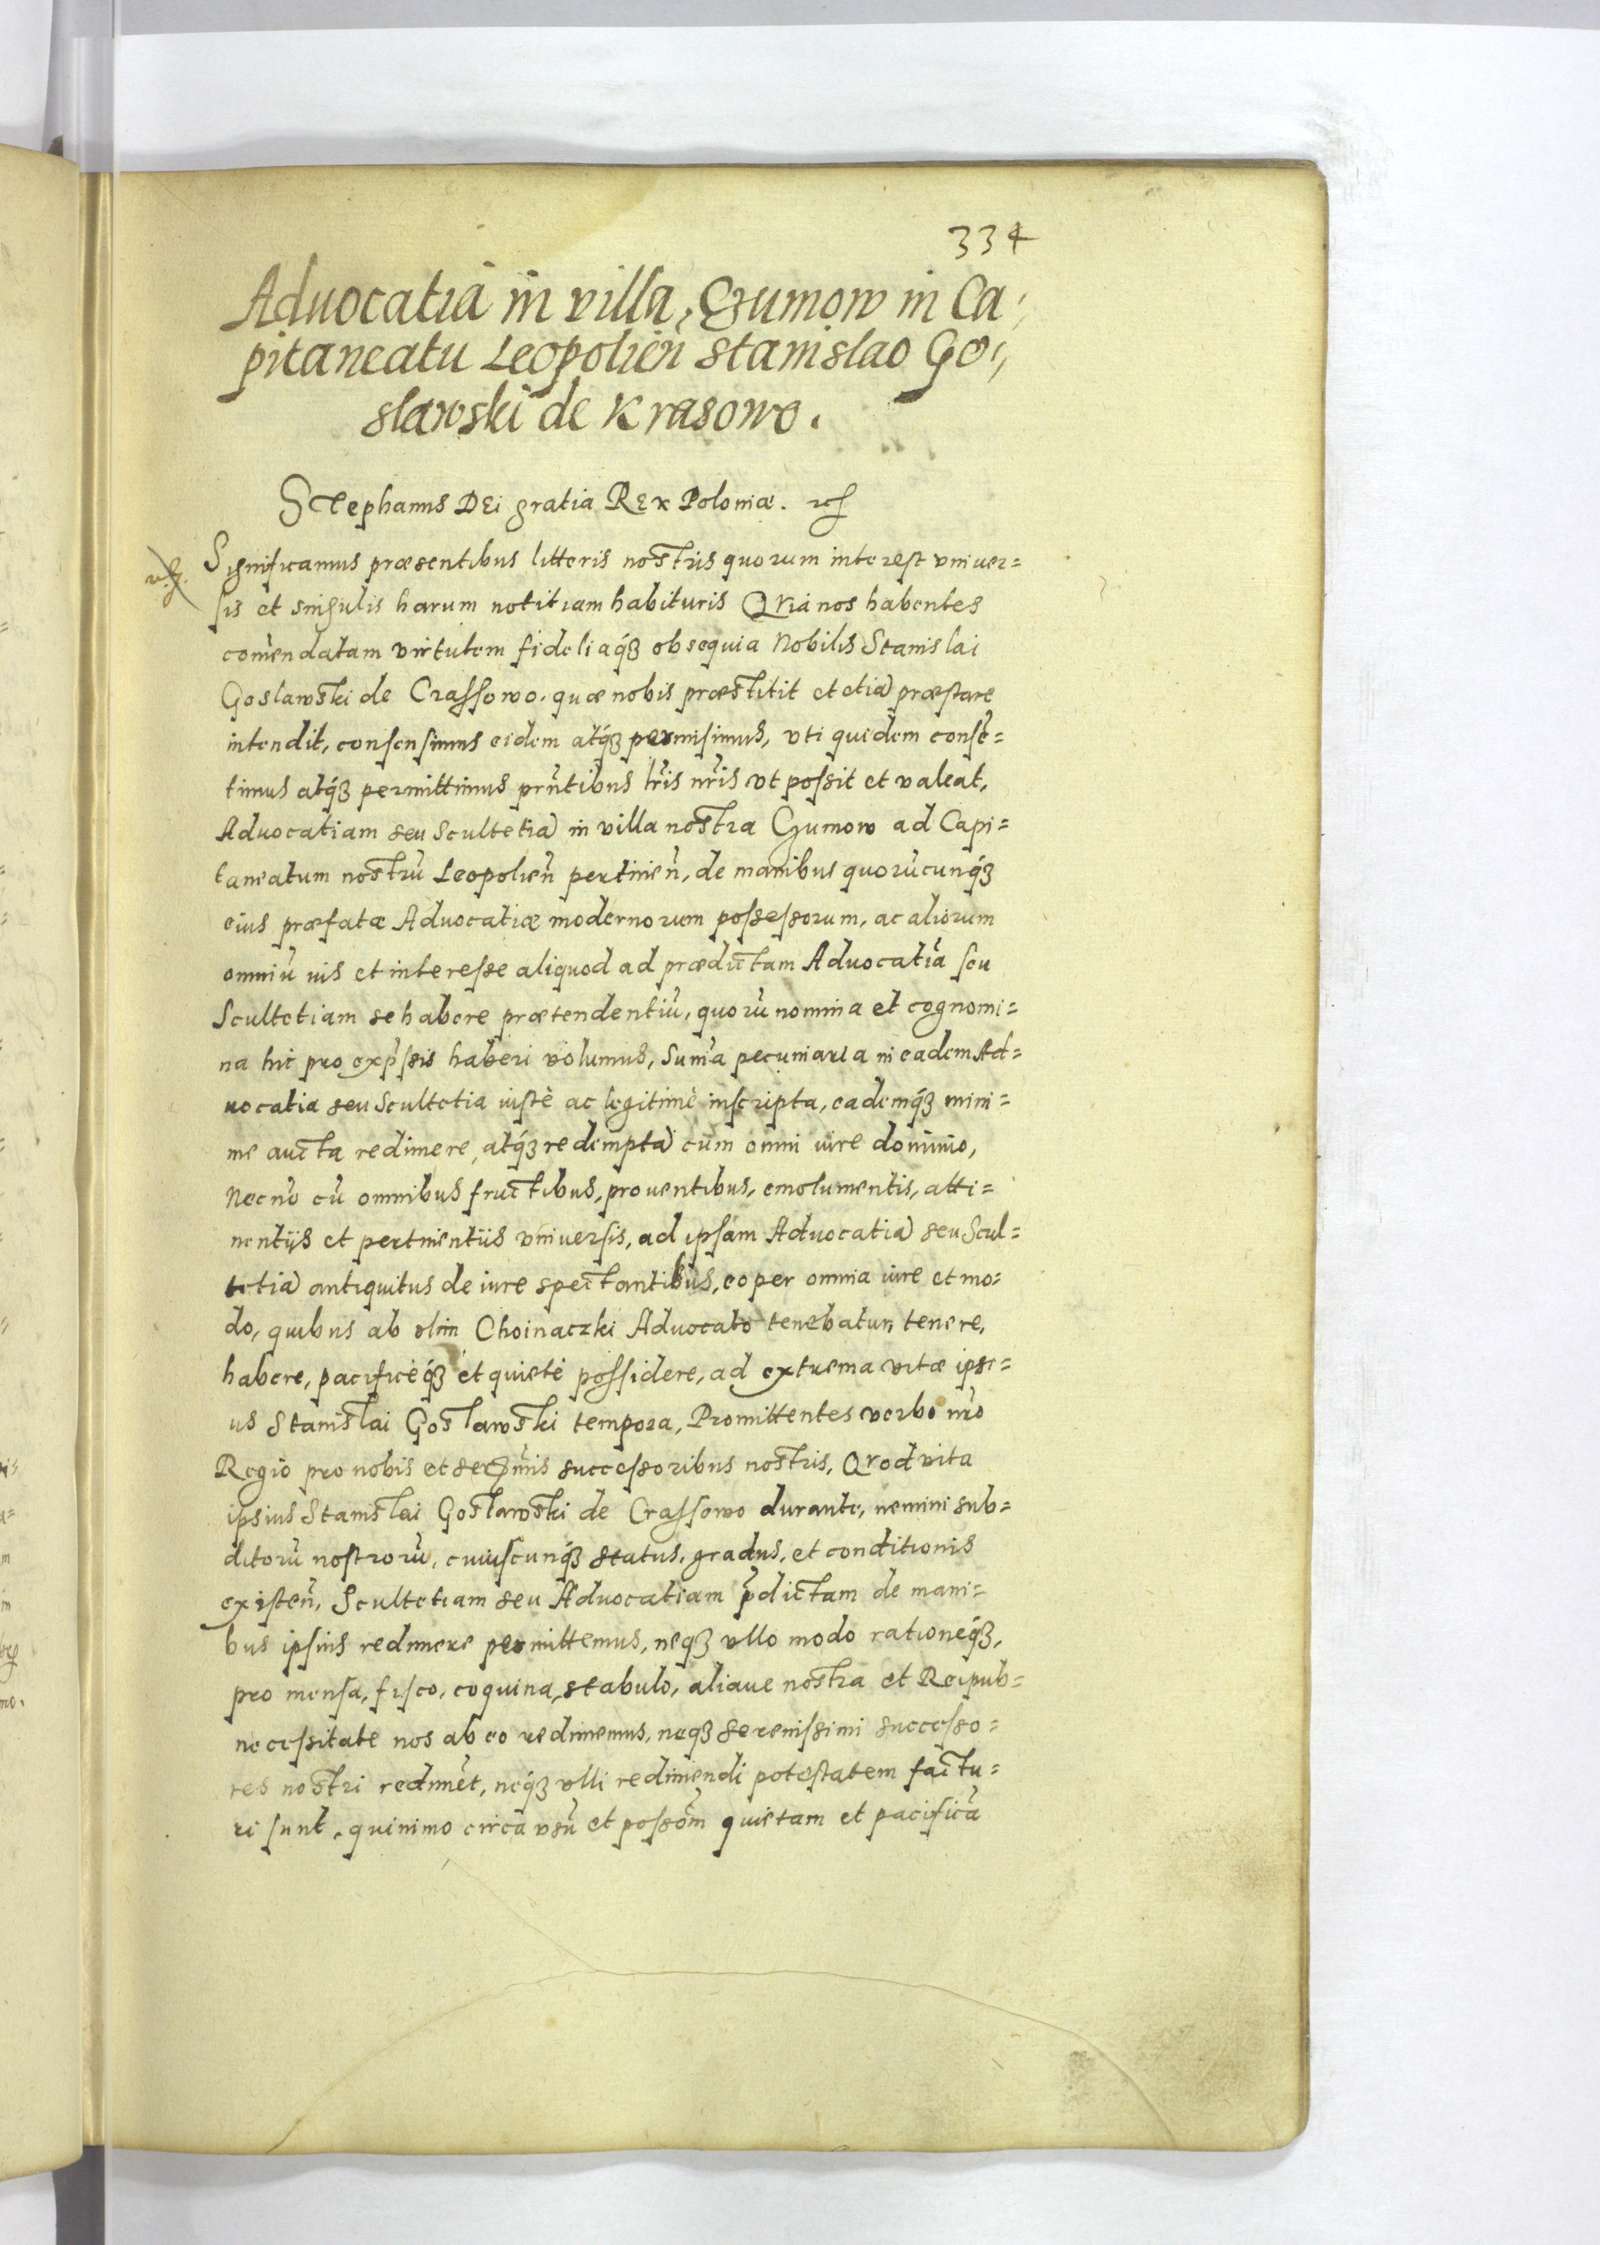 334
Aduocatia in villa Czumow in Ca,
pitaneatu Leopolień Stanislao Go,
slawski de Krasowo.
Stephanus DEi gratia REx Poloniæ.
Significamus præsentibus litteris nostris quorum interest vniuer=
sis et singulis harum notitiam habituris Qvia nos habentes
comēndatam virtutem fideliaq́ꝫ obsequia Nobilis Stanislai
Goslawski de Crassowo. quæ nobis præstitit et etiā præstare
intendit, consensimus eidem atq́ꝫ permisimus, vti quidem consē=
timus atq́ꝫ permittimus prn̄tibus lr̄is nr̄is vt possit et valeat,
Aduocatiam seu Scultetiā in villa nostra Czumow ad Capi=
taneatum nostrū Leopolień pertinen̄, de manibus quorūcunq́ꝫ
eius præfatæ Aduocatiæ modernorum possessorum, ac aliorum
omniū ius et interesse aliquod ad prædictam Aduocatiā seu
Scultetiam se habere prætendentiū, quorū nomina et cognomi=
na hic pro exp̄ssis haberi volumus, Sum̄a pecuniaria in eadem Ad=
uocatia seu Scultetia iustè ac legitimè inscripta, eademq́ꝫ mini=
me aucta redimere, atq́ꝫ redemptā cum omni iure dominio,
Necnō cū omnibus fructibus, prouentibus, emolumentis, atti=
nentijs et pertinentiis vniuersis, ad ipsam Aduocatiā seu Scul=
tetiā antiquitus de iure spectantibus, eo per omnia iure et mo=
do, quibus ab olim Choinaczki Aduocato tenebatur, tenere,
habere, pacificèq́ꝫ et quietè possidere, ad extrema vitæ ipsi=
us Stanislai Goslawski tempora, Promittentes verbo nr̄o
Regio pro nobis et serēmis successoribus nostris, Qvod vita
ipsius Stanislai Goslawski de Crassowo durante, nemini sub=
ditorū nostrorū, cuiuscunq́ꝫ status, gradus, et conditionis
existen̄, Scultetiam seu Aduocatiam p̄dictam de mani=
bus ipsius redimere permittemus, neqꝫ vllo modo rationeq́ꝫ,
pro mensa, fisco, coquina, stabulo, aliaue nostra et Reipub=
necessitate nos ab eo redimemus, neqꝫ serenissimi successo=
res nostri redimēt, neq́ꝫ vlli redimendi potestatem factu=
ri sunt, quinimo circa vsū et possōm quietam et pacificā